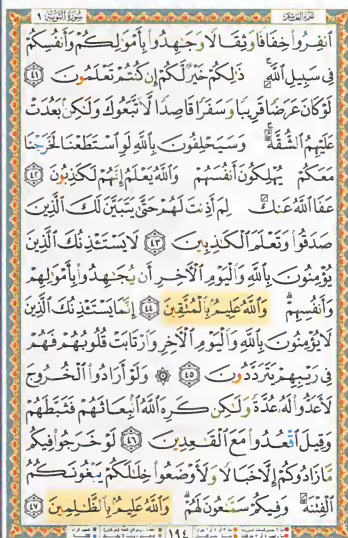 الجزء العاشر سورة التوبة ٩
ٱنفِرُوا۟ خِفَافًا وَثِقَالًا وَجَٰهِدُوا۟ بِأَمْوَٰلِكُمْ وَأَنفُسِكُمْ
فِى سَبِيلِ ٱللَّهِ ذَٰلِكُمْ خَيْرٌ لَّكُمْ إِن كُنتُمْ تَعْلَمُونَ ٤١
لَوْ كَانَ عَرَضًا قَرِيبًا وَسَفَرًا قَاصِدًا لَّٱتَّبَعُوكَ وَلَٰكِنۢ بَعُدَتْ
عَلَيْهِمُ ٱلشُّقَّةُ وَسَيَحْلِفُونَ بِٱللَّهِ لَوِ ٱسْتَطَعْنَا لَخَرَجْنَا
مَعَكُمْ يُهْلِكُونَ أَنفُسَهُمْ وَٱللَّهُ يَعْلَمُ إِنَّهُمْ لَكَٰذِبُونَ ٤٢
عَفَا ٱللَّهُ عَنكَ لِمَ أَذِنتَ لَهُمْ حَتَّىٰ يَتَبَيَّنَ لَكَ ٱلَّذِينَ
صَدَقُوا۟ وَتَعْلَمَ ٱلْكَٰذِبِينَ ٤٣ لَا يَسْتَـْٔذِنُكَ ٱلَّذِينَ
يُؤْمِنُونَ بِٱللَّهِ وَٱلْيَوْمِ ٱلْءَاخِرِ أَن يُجَٰهِدُوا۟ بِأَمْوَٰلِهِمْ
وَأَنفُسِهِمْ وَٱللَّهُ عَلِيمٌۢ بِٱلْمُتَّقِينَ ٤٤ إِنَّمَا يَسْتَـْٔذِنُكَ ٱلَّذِينَ
لَا يُؤْمِنُونَ بِٱللَّهِ وَٱلْيَوْمِ ٱلْءَاخِرِ وَٱرْتَابَتْ قُلُوبُهُمْ فَهُمْ
فِى رَيْبِهِمْ يَتَرَدَّدُونَ ٤٥ ۞ وَلَوْ أَرَادُوا۟ ٱلْخُرُوجَ
لَأَعَدُّوا۟ لَهُۥ عُدَّةً وَلَٰكِن كَرِهَ ٱللَّهُ ٱنۢبِعَاثَهُمْ فَثَبَّطَهُمْ
وَقِيلَ ٱقْعُدُوا۟ مَعَ ٱلْقَٰعِدِينَ ٤٦ لَوْ خَرَجُوا۟ فِيكُم
مَّا زَادُوكُمْ إِلَّا خَبَالًا وَلَأَوْضَعُوا۟ خِلَٰلَكُمْ يَبْغُونَكُمُ
ٱلْفِتْنَةَ وَفِيكُمْ سَمَّٰعُونَ لَهُمْ وَٱللَّهُ عَلِيمٌۢ بِٱلظَّٰلِمِينَ ٤٧
١٩٤